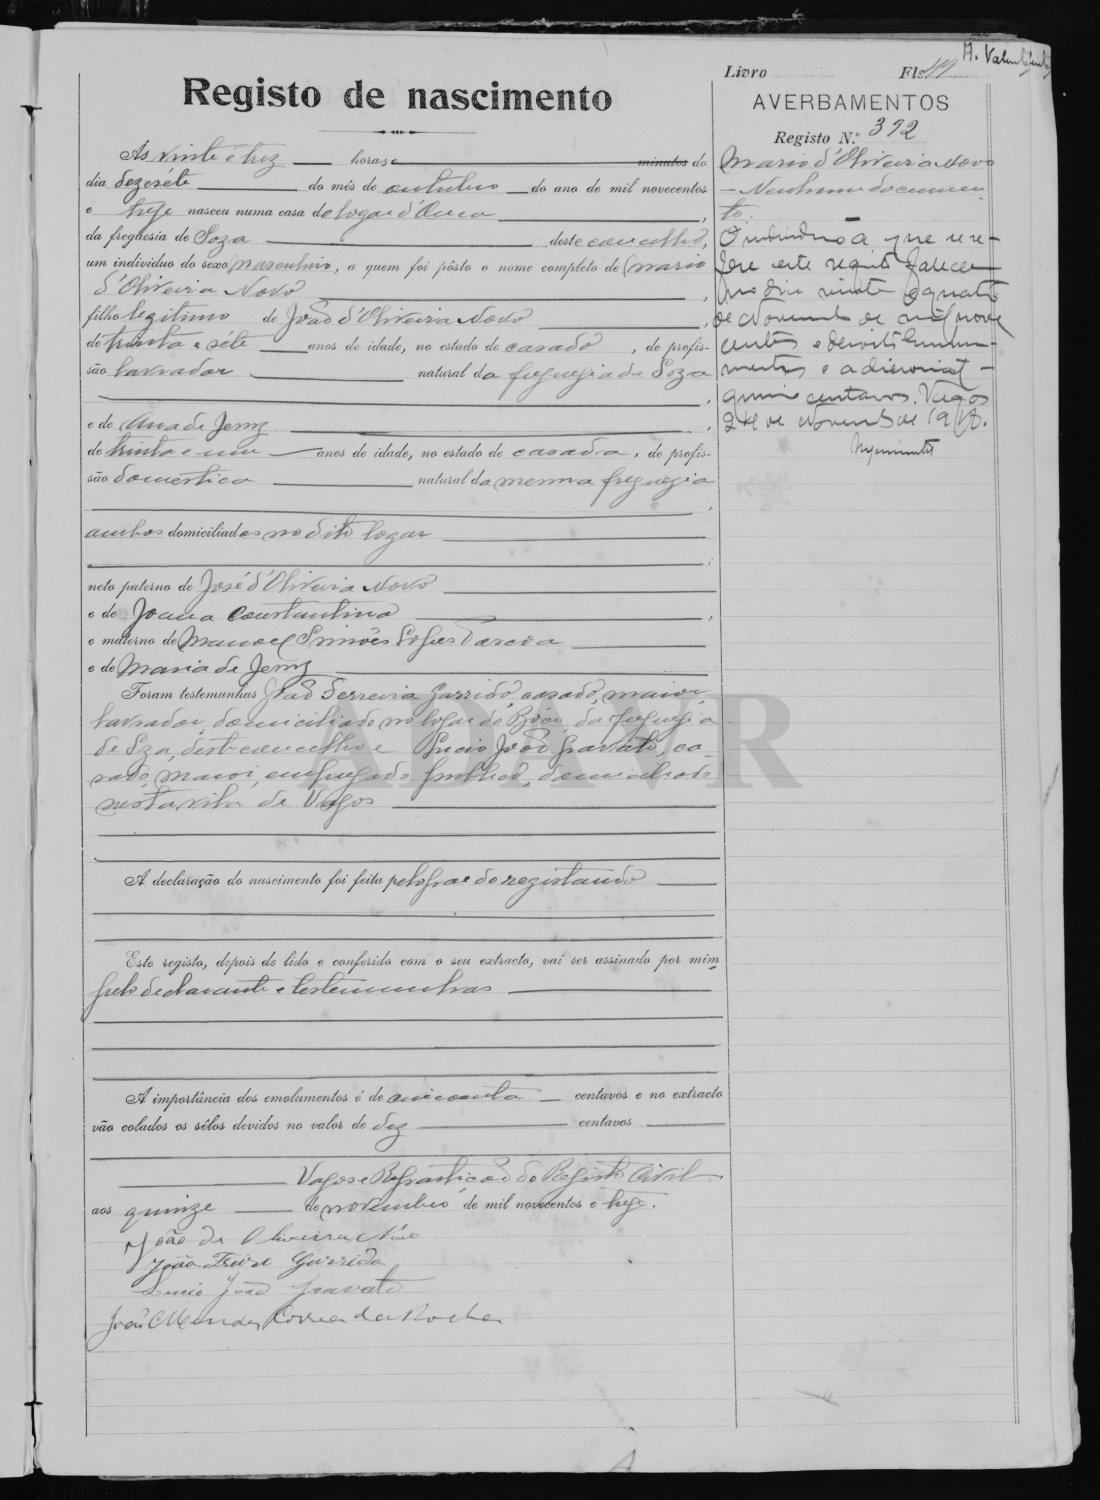 Livro Fls
Registo de nascimento
AVERBAMENTOS
Registo N.º 392
As vinte e trez horas e minutos do
dia dezeséte do mês de outubro do ano de mil novecentos
e treze nasceu numa casa do logar d'Ouca,
da freguesia de Soza deste concelho,
um individuo do sexo masculino, a quem foi pôsto o nome completo de Mario
d'Oliveira Novo,
filho legitimo de João d'Oliveira Novo,
de trinta e séte anos de idade, no estado de casado, de profis-
são lavrador natural da freguezia de Soza,
e de Ana de Jesus,
de trinta e um anos de idade, no estado de casada, de profis-
são domestica natural da mesma freguezia,
ambos domiciliados no dito logar;
neto paterno de José d'Oliveira Novo
e de Joana Constantina,
e materno de Manoel Simões Lopes
e de Maria de Jesus
Foram testemunhas João Ferreira Garrido, casado, maior,
lavrador, domiciliado no logar de Boco, da freguezia
de Soza, deste concelho e Lucio João Gravato, ca-
sado, maior, empregado publico, domiciliado
nesta vila de Vagos
A declaração do nascimento foi feita pelo pae do registando
Este registo, depois de lido e conferido com o seu extracto, vai ser assinado por mim
pelo declarante e testemunhas
A importância dos emolumentos é de cincoenta centavos e no extracto
vão colados os sêlos devidos no valor de dez centavos
Vagos e Repartição do Registo Civil
aos quinze de novembro de mil novecentos e treze.
João de Oliveira Novo
João Freire Garrido
Lucio João Gravato
João Mendes Correa da Rocha
Mario d'Oliveira Novo
- Nenhum documen-
to.
O individuo a que se re-
fere este registo faleceu
no dia vinte e quatro
de Novembro de mil nove
centos e dezoito
quinze centavos. Vagos
24 de Novembro de 1918.
ADAVR